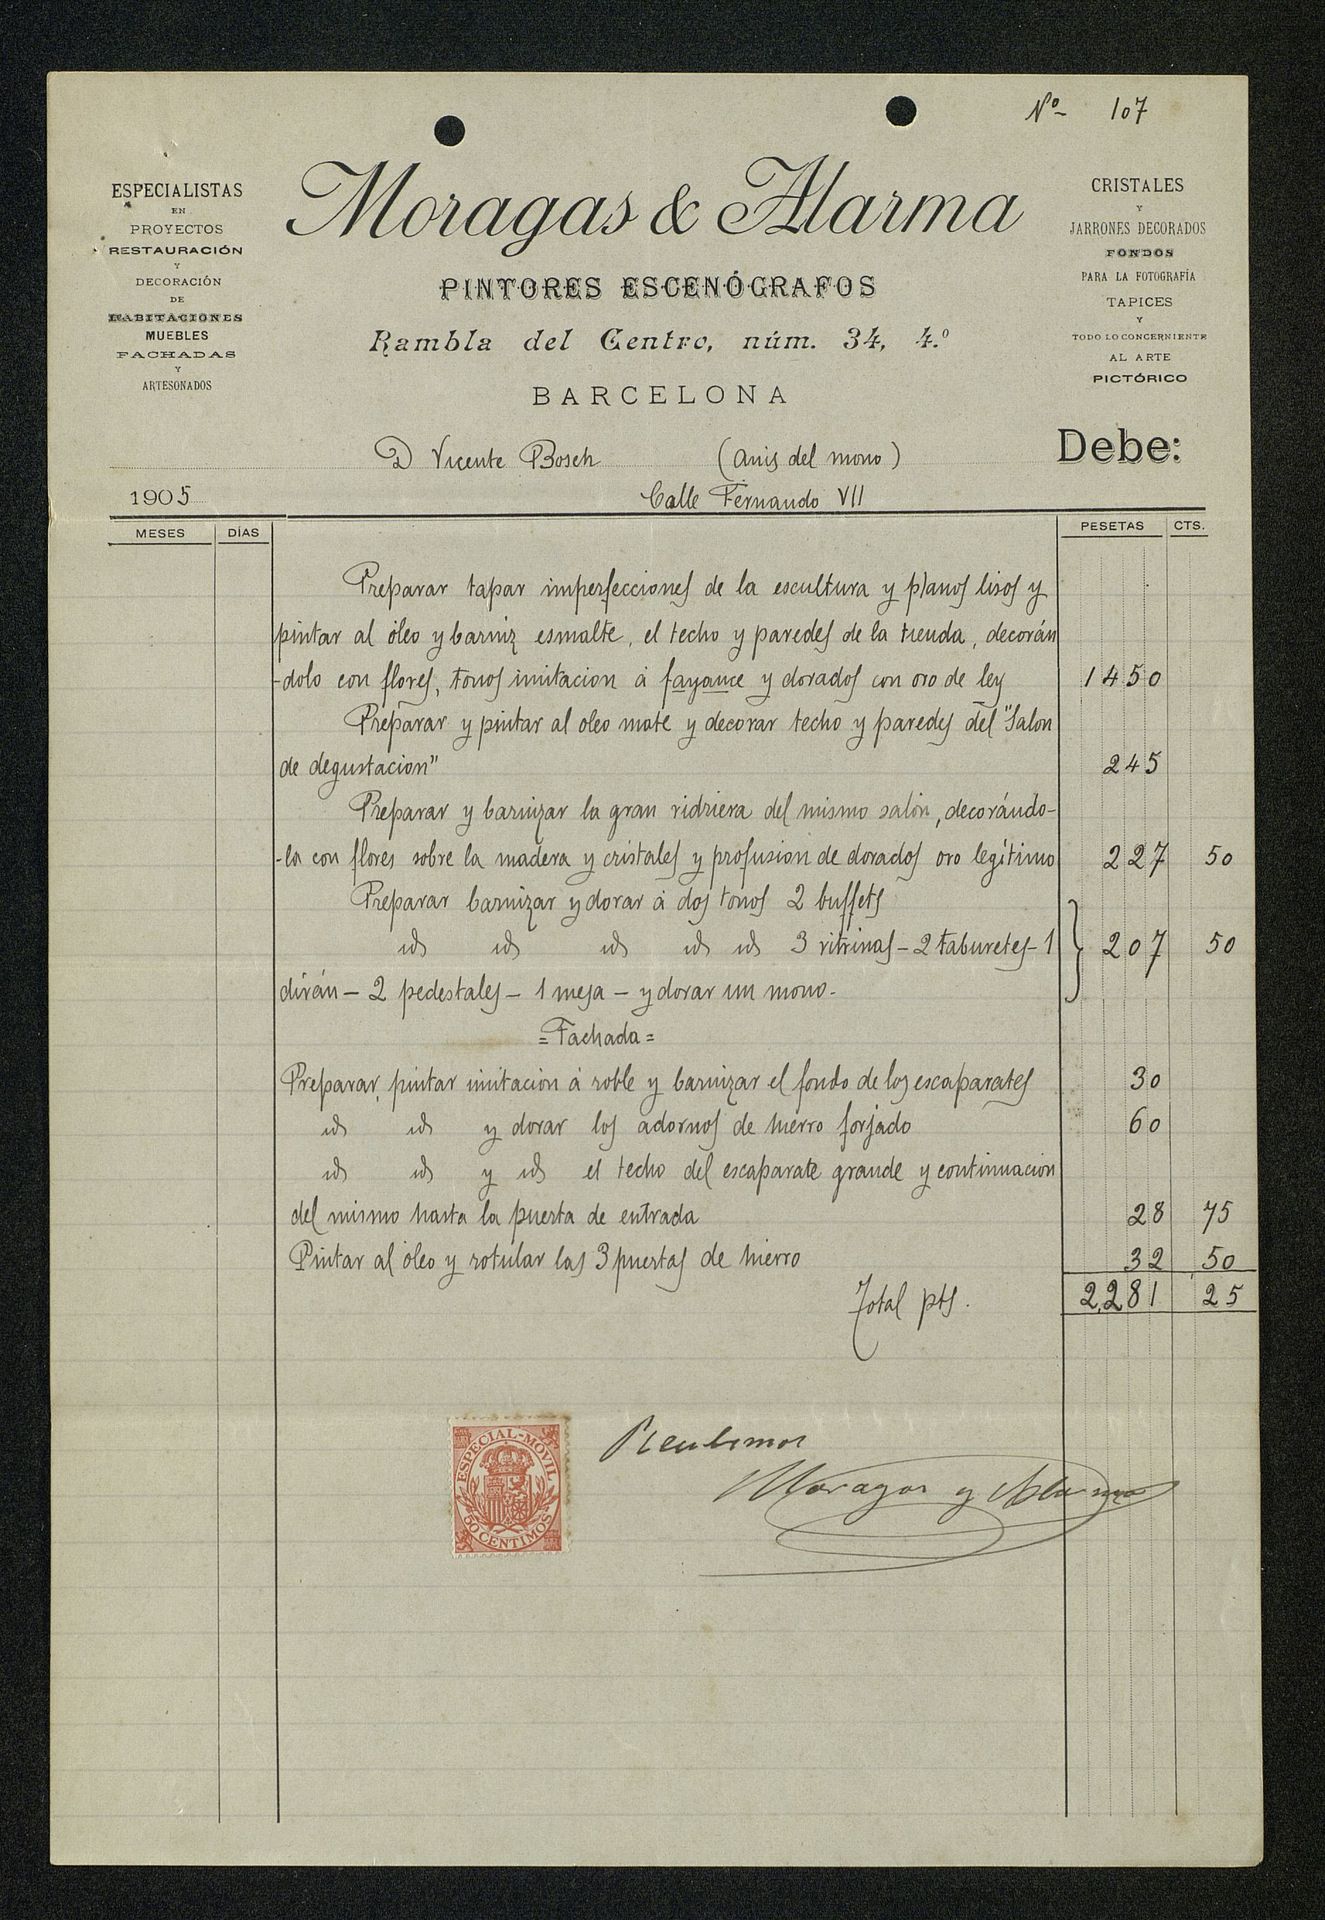 Nº 107
ESPECIALISTAS
EN
PROYECTOS
RESTAURACIÓN
Y
DECORACIÓN
DE
HABITACIONES
MUEBLES
FACHADAS
Y
ARTESONADOS
Moragas & Alarma
PINTORES ESCENÓGRAFOS
Rambla del Centro, núm. 34, 4.º
BARCELONA
CRISTALES
Y
JARRONES DECORADOS
FONDOS
PARA LA FOTOGRAFÍA
TAPICES
Y
TODO LO CONCERNIENTE
AL ARTE
PICTÓRICO
D Vicente Bosch (Anis del mono) Debe:
1905 Calle Fernando VII
MESES DÍAS PESETAS CTS.
Preparar tapar imperfecciones de la escultura y planos lisos y
pintar al óleo y barniz esmalte, el techo y paredes de la tienda, decorán
-dolo con flores, tonos imitacion á fayance y dorados con oro de ley 1450
Preparar y pintar al oleo mate y decorar techo y paredes del "Salon
de degustacion" 245
Preparar y barnizar la gran vidriera del mismo salón, decorándo-
-la con flores sobre la madera y cristales y profusion de dorados oro legítimo 227 50
Preparar barnizar y dorar á dos tonos 2 buffets
id id id id id 3 vitrinas - 2 taburetes - 1 } 207 50
diván - 2 pedestales - 1 mesa - y dorar un mono.
= Fachada =
Preparar, pintar imitacion á roble y barnizar el fondo de los escaparates 30
id id y dorar los adornos de hierro forjado 60
id id y id el techo del escaparate grande y continuacion
del mismo hasta la puerta de entrada 28 75
Pintar al óleo y rotular las 3 puertas de hierro 32 50
Total pts. 2,281 25
ESPECIAL-MÓVIL
50 CENTIMOS
Recibimos
Moragas y Alarma